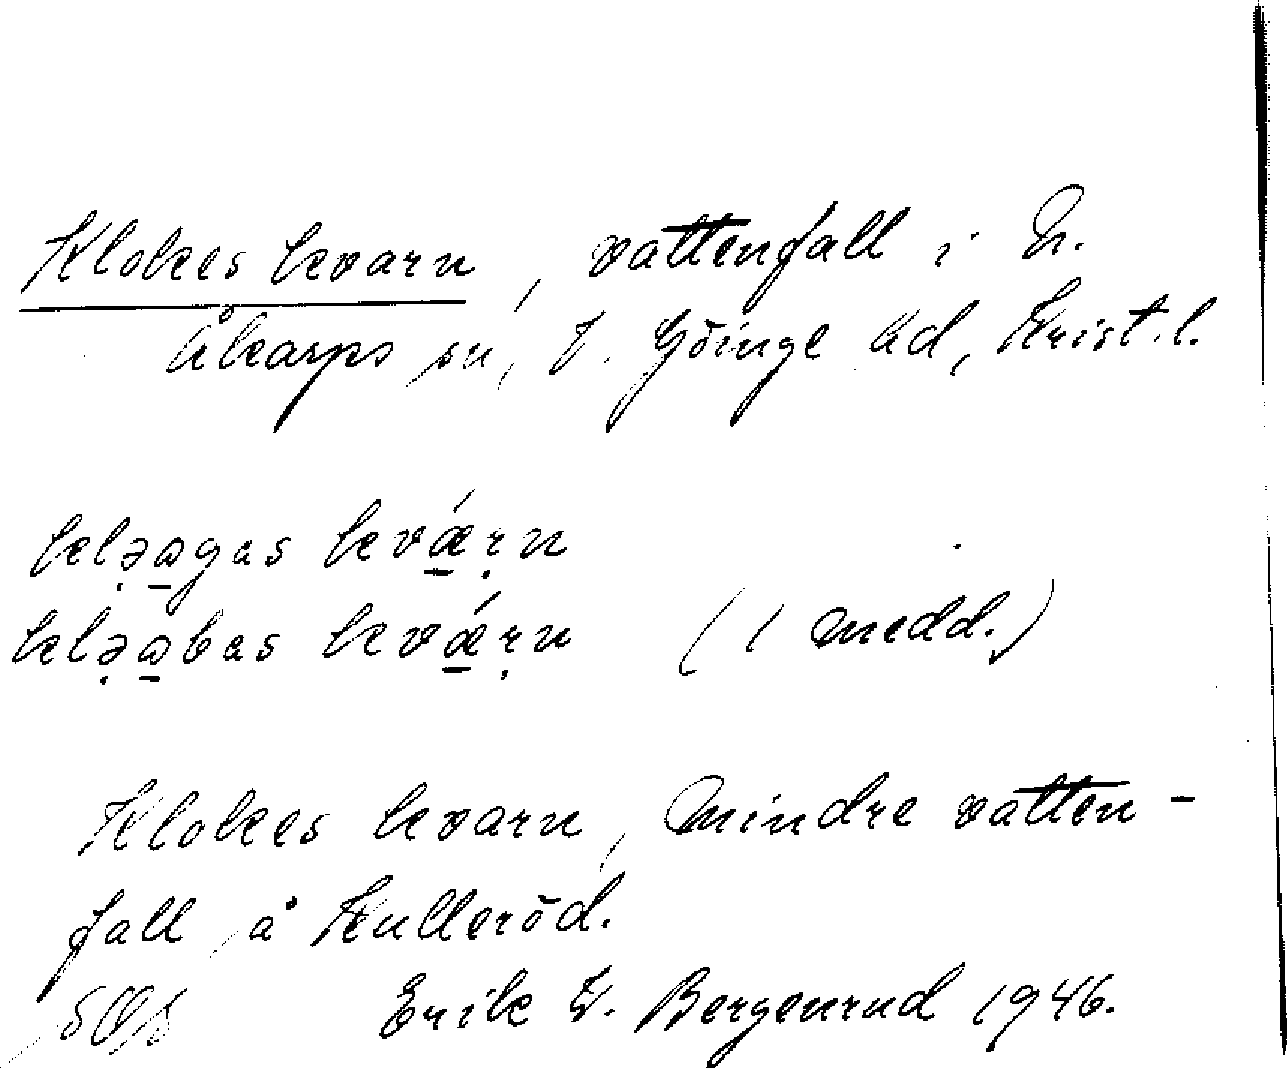 Klokes kvarn, vattenfall i N.
Åkarps sn, V. Göinge hd, Krist. l.
klə̣a̱gas kvǽ̱ṛn
klə̣a̱kas kvǽ̱ṛn (1 medd.)
Klokes kvarn, mindre vatten-
fall å Kulleröd.
Erik W. Bergenrud 1946.